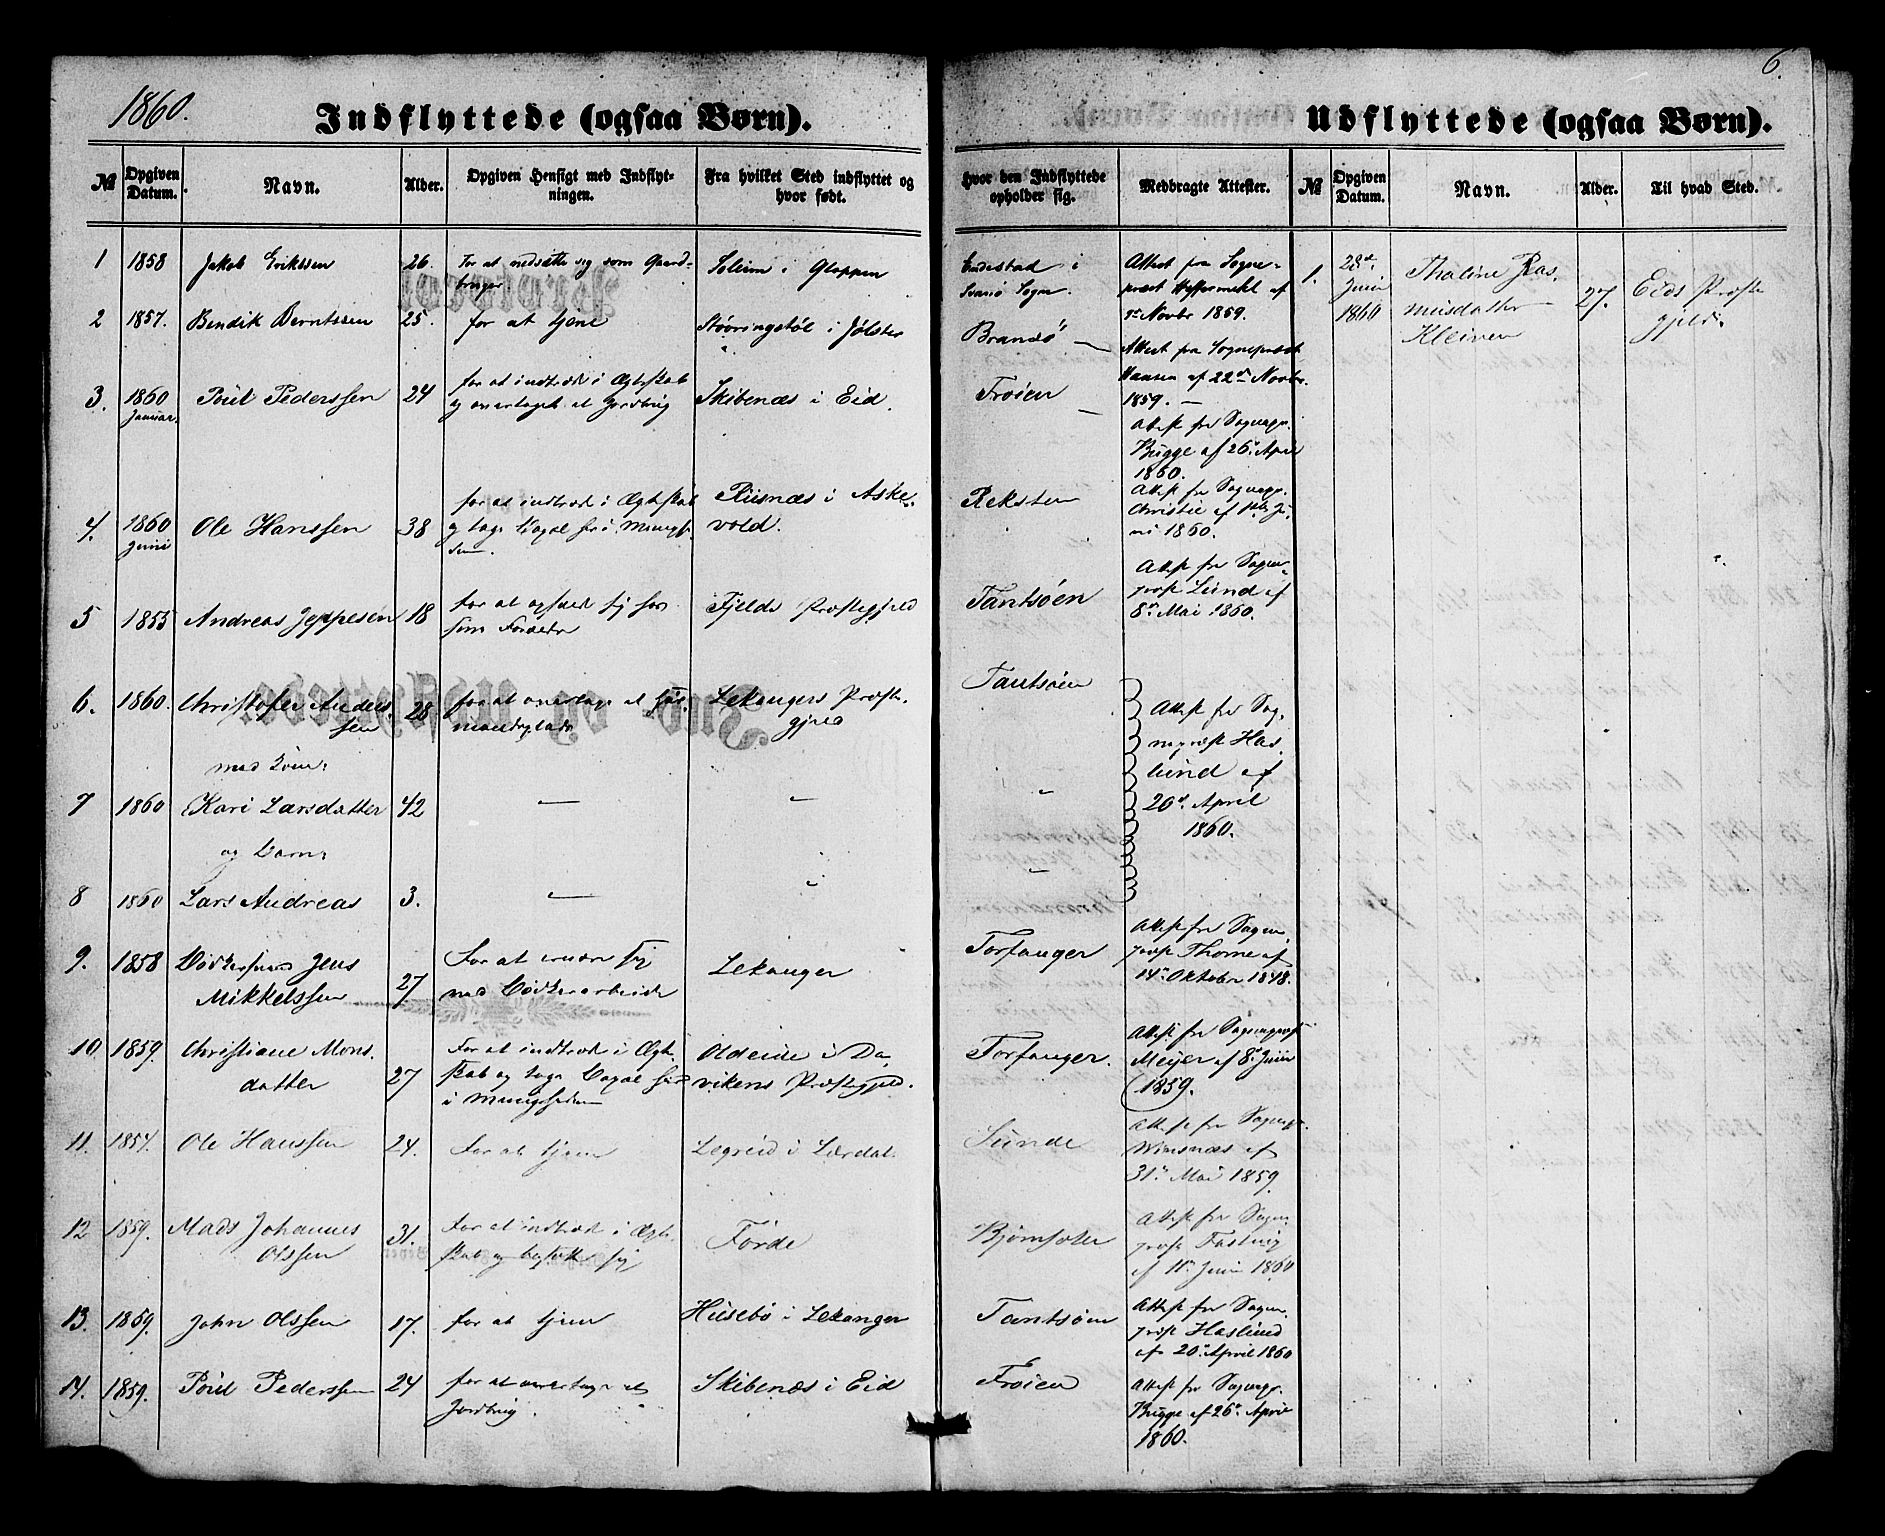 1860.
Indflyttede (ogsaa Børn).
№
Opgiven Datum.
Navn.
Alder.
Opgiven Hensigt med Indflyt-
ningen.
Fra hvilket Sted indflyttet og
hvor født.
hvor den Indflyttede
opholder sig.
Medbragte Attester.
1 1858 Jakob Erikssen 26. For at nedsætte sig som Gaard-
bruger
Soleim i Gloppen
Endestad i
Svanø Sogn.
Attest fra Sogne-
præst Heffermehl af
1ste Novbr 1859.
2 1857. Bendik Berntssen 25. for at tjene
Støvringstøl i Jølster
Brandsö
Attest fra Sognepræst
Hansen af 22de Novbr.
1859. —
3. 1860
Januar.
Poül Pederssen 24 for at indtræde i Ægteskab
og overtaget et Jordbrug
Skibenæs i Eid.
Frøien
Attest fra Sognepr.
Bügge af 26. April
1860.
4. 1860
Juni
Ole Hanssen 38 for at indtræde i Ægteskab
og tage Bopæl her i Menighe-
den.
Riisnæs i Aske-
vold.
Reksten
Attest fra Sognepr.
Christie af 1ste Ju-
ni 1860.
5 1855 Andreas Jeppesen 18 for at opholde sig hos
sine Forældre
Fjelds Præstegjeld
Tantsøen
Attest fra Sogne-
præst Lünd af
8de Mai 1860.
6. 1860. Christofer Anders-
sen
28 for at overtage et Hüs-
mandsplads
Lekangers Præste-
gjeld
Tantsøen
Attest fra Sog-
nepræst Has-
lünd af
20de April
1860.
med Kone:
7 1860 Kari Larsdatter 42 — " "
og Barn:
8 1860 Lars Andreas 3. — " "
9. 1858 Bødkersvend Jens
Mikkelssen
27 For at ernære sig
med Bödkerarbeide
Lekanger
Torfanger
Attest fra Sogne-
præst Thorne af
14de Oktober 1848.
10. 1859. Christiane Mons-
datter
27 For at indtræde i Ægte-
skab og tage Bopæl her
i Menigheden
Oldeide i Da-
vikens Præstegjeld.
Torfanger.
Attest fra Sognepræst
Meijer af 8de Juni
1859.
11. 1854. Ole Hanssen 24. For at tjene
Legreid i Lærdal.
Sünde
Attest fra Sognepr.
Wimsnæs af
31te Mai 1859.
12 1859. Mads Johannes
Olssen
31. For at indtræde i Ægte-
skab og bosætte sig
Førde
Bjørnsæter
Attest fra Sogne-
præst Fastnig
af 11te Juni 1860
13. 1859. John Olssen 17. for at tjene
Hüsebö i Lekanger
Tantsøen
Attest fra Sogne-
præst Haslünd
af 20de April 1860
14. 1859. Poül Pederssen 24 for at overtage et
Jordbrug.
Skibenæs i Eid
Frøien
Attest fra Sognepr.
Bügge af 26de April
1860.
6.
Udflyttede (ogsaa Børn).
№
Opgiven
Datum.
Navn.
Alder.
Til hvad Sted.
1. 28de
Juni
1860
Thaline Ras-
musdatter
Kleiven
27.
Eids Præste-
gjeld.